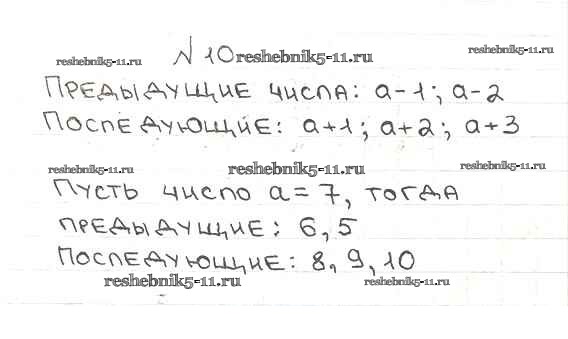 №10 reshebnik5-11.ru
reshebnik5-11.ru reshebnik5-11.ru
ПРЕДЫДУЩИЕ ЧИСЛА: a-1; a-2
ПОСЛЕДУЮЩИЕ: a+1; a+2; a+3
reshebnik5-11.ru reshebnik5-11.ru reshebnik5-11.ru
ПУСТЬ ЧИСЛО a=7, ТОГДА
ПРЕДЫДУЩИЕ: 6,5
ПОСЛЕДУЮЩИЕ: 8, 9, 10
reshebnik5-11.ru reshebnik5-11.ru